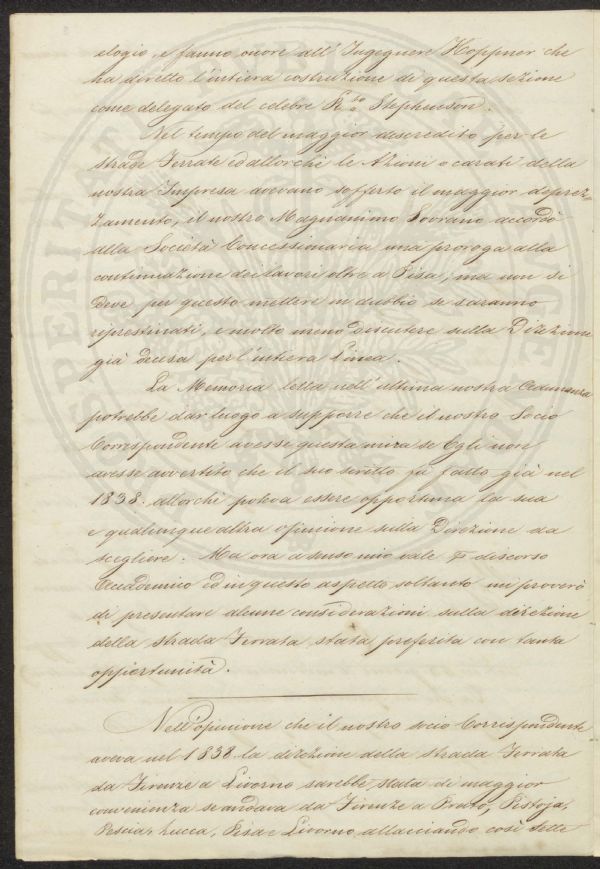 elogio, e fanno onore all'Ingegnere Hoppner che
ha diretto l'intiera costruzione di questa sezione
come delegato del celebre R.to Stephenson.
Nel tempo del maggior discredito per le
strade Ferrate ed allorchè le Azioni o carati della
nostra Impresa avevano sofferto il maggior deprez=
zamento, il nostro Magnanimo Sovrano accordò
alla Società Concessionaria una proroga alla
continuazione dei lavori oltre a Pisa; ma non si
deve per questo mettere in dubbio se saranno
ripristinati, e molto meno discutere sulla Direzione
già decisa per l'intiera Linea.
La Memoria letta nell'ultima nostra Adunanza
potrebbe dar luogo a supporre che il nostro Socio
Corrispondente avesse questa mira se Egli non
avesse avvertito che il suo scritto fu fatto già nel
1838. allorchè poteva essere opportuna la sua
e qualunque altra opinione sulla Direzione da
scegliere. Ma ora a senso mio vale discorso
Accademico ed in questo aspetto soltanto mi proverò
di presentare alcune considerazioni sulla direzione
della strada Ferrata stata preferita con tanta
opportunità.
Nell'opinione che il nostro socio Corrispondente
aveva nel 1838 la direzione della strada Ferrata
da Firenze a Livorno sarebbe stata di maggior
convenienza se andava da Firenze a Prato, Pistoja,
Pescia, Lucca, Pisa e Livorno allacciando così sette
SPERITAS PVBLICA